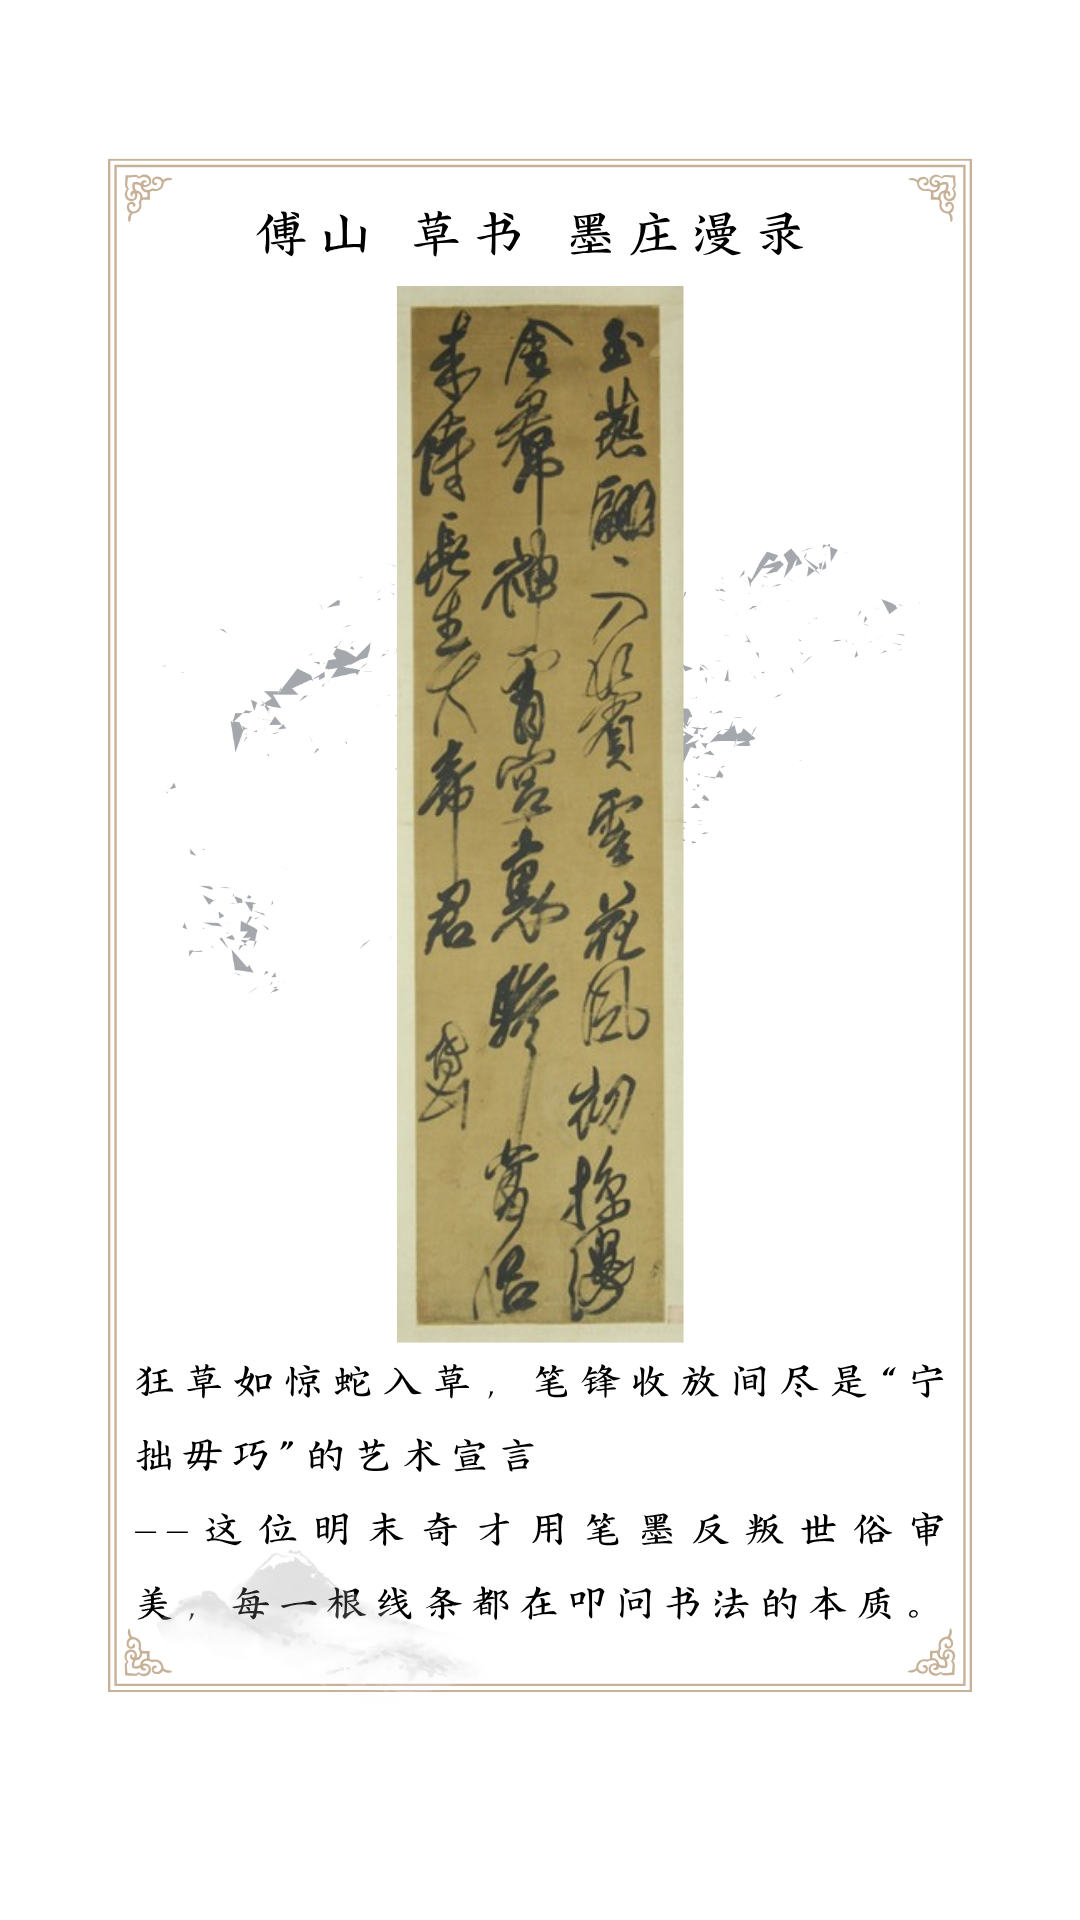 傅山 草书 墨庄漫录
玉燕翩〻入鬓云花风初掠缕
金裙神霄宫里骖鸾侣
来侍长生大帝君
傅山
狂草如惊蛇入草，笔锋收放间尽是“宁
拙毋巧”的艺术宣言
——这位明末奇才用笔墨反叛世俗审
美，每一根线条都在叩问书法的本质。